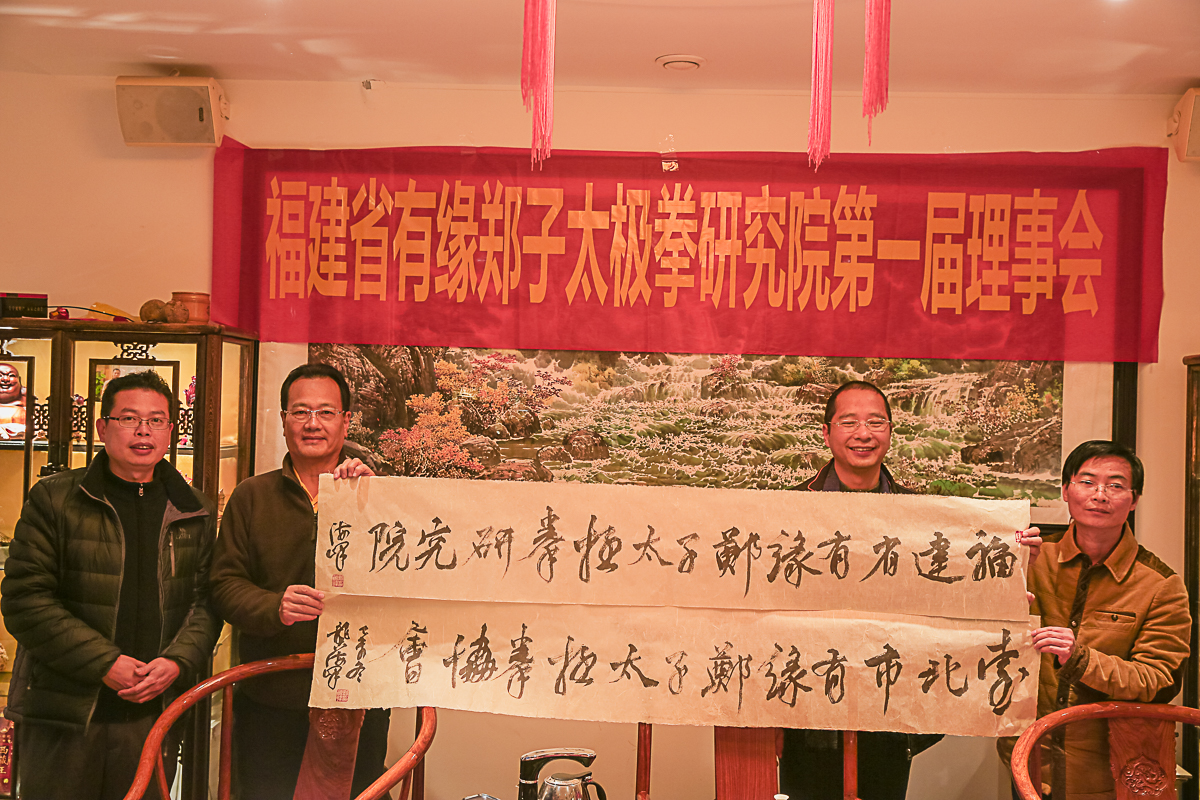 福建省有缘郑子太极拳研究院第一届理事会
福建省有緣鄭子太極拳研究院
臺北市有緣鄭子太極拳協會